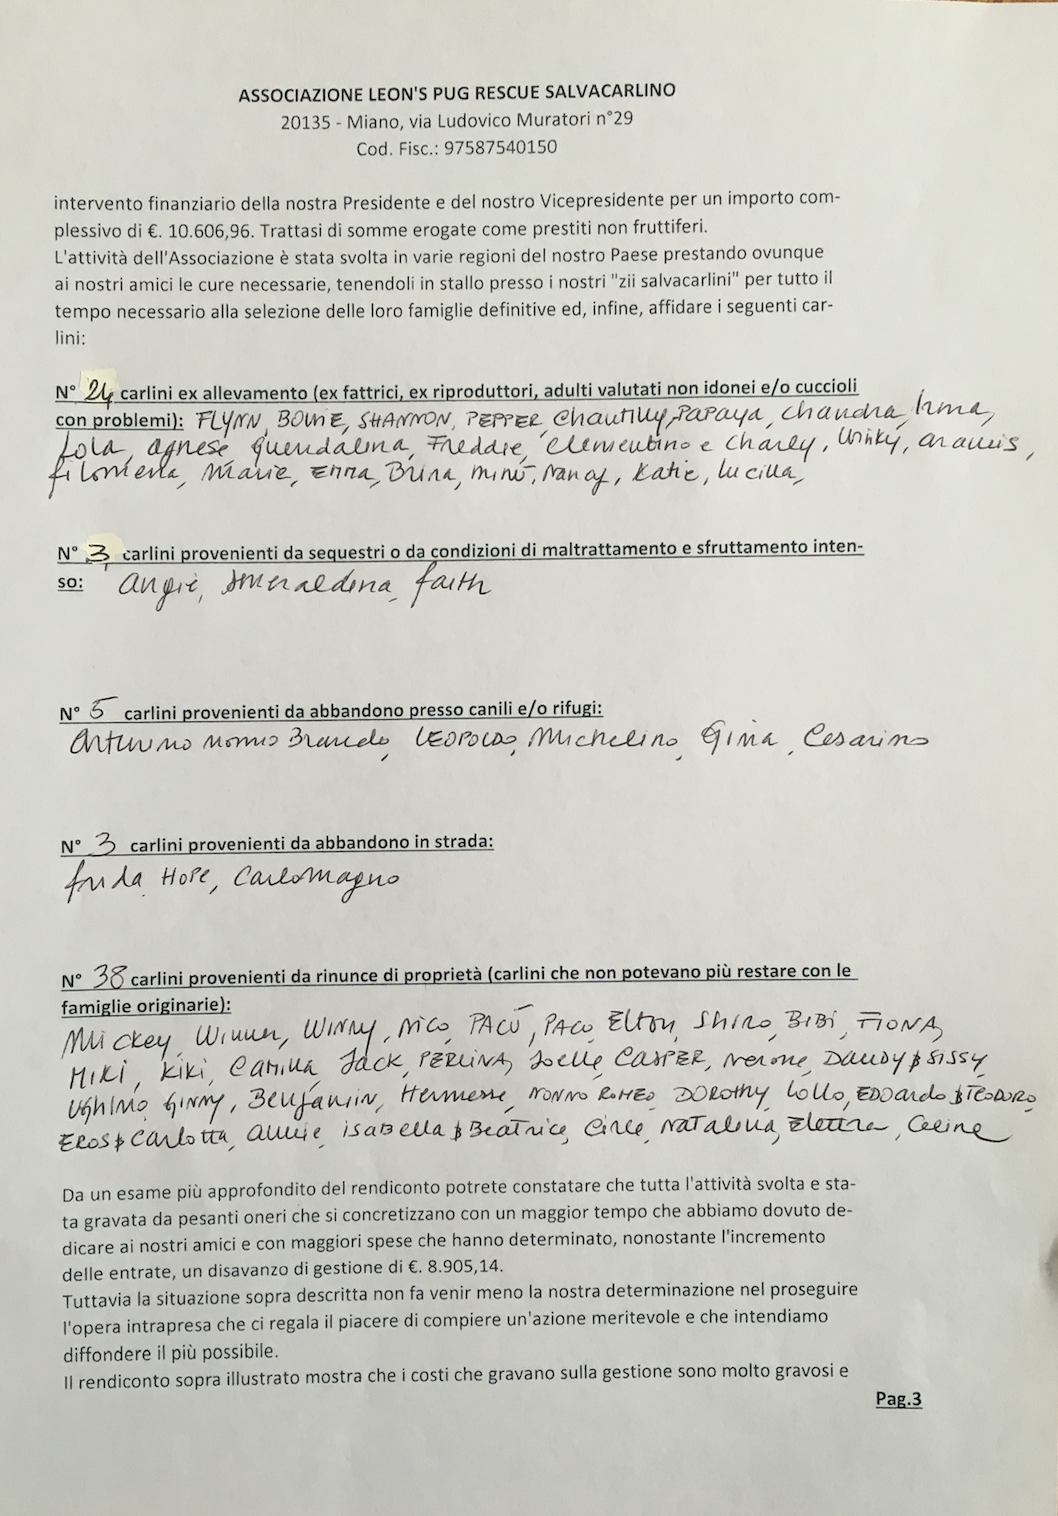 ASSOCIAZIONE LEON'S PUG RESCUE SALVACARLINO
20135 - Miano, via Ludovico Muratori n°29
Cod. Fisc.: 97587540150
intervento finanziario della nostra Presidente e del nostro Vicepresidente per un importo com-
plessivo di €. 10.606,96. Trattasi di somme erogate come prestiti non fruttiferi.
L'attività dell'Associazione è stata svolta in varie regioni del nostro Paese prestando ovunque
ai nostri amici le cure necessarie, tenendoli in stallo presso i nostri "zii salvacarlini" per tutto il
tempo necessario alla selezione delle loro famiglie definitive ed, infine, affidare i seguenti car-
lini:
N° 24 carlini ex allevamento (ex fattrici, ex riproduttori, adulti valutati non idonei e/o cuccioli
con problemi): FLYNN, BOWIE, SHANNON, PEPPER, Chantilly, Papaya, Chandra, Irma,
Lola, agnese, Guendalina, Freddie, Clementino e Charly, Winky, aramis,
filomena, Marie, Emma, Brina, Minù, Nancy, Katie, Lucilla,
N° 3 carlini provenienti da sequestri o da condizioni di maltrattamento e sfruttamento inten-
so: angie, Smeraldina, faith
N° 5 carlini provenienti da abbandono presso canili e/o rifugi:
Arturino nonno Brando, LEOPOLDO, Michelino, Gina, Cesarino
N° 3 carlini provenienti da abbandono in strada:
frida, HOPE, Carlomagno
N° 38 carlini provenienti da rinunce di proprietà (carlini che non potevano più restare con le
famiglie originarie):
Mickey, Winner, WINNY, Nico, PACÙ, PACO, Elton, Shiro, BIBI, FIONA,
MIKI, KIKI, Camilla, Jack, PERLINA, Joelle, CASPER, Nerone, DANDY & SISSY
UGHINO, GINNY, Benjamin, Hermesse, NONNO ROMEO, DOROTHY, Lollo, EDOardo & TEODORO
EROS & Carlotta, annie, isaBella & Beatrice, Circe, NATALINA, Elettra, Celine
Da un esame più approfondito del rendiconto potrete constatare che tutta l'attività svolta e sta-
ta gravata da pesanti oneri che si concretizzano con un maggior tempo che abbiamo dovuto de-
dicare ai nostri amici e con maggiori spese che hanno determinato, nonostante l'incremento
delle entrate, un disavanzo di gestione di €. 8.905,14.
Tuttavia la situazione sopra descritta non fa venir meno la nostra determinazione nel proseguire
l'opera intrapresa che ci regala il piacere di compiere un'azione meritevole e che intendiamo
diffondere il più possibile.
Il rendiconto sopra illustrato mostra che i costi che gravano sulla gestione sono molto gravosi e
Pag.3